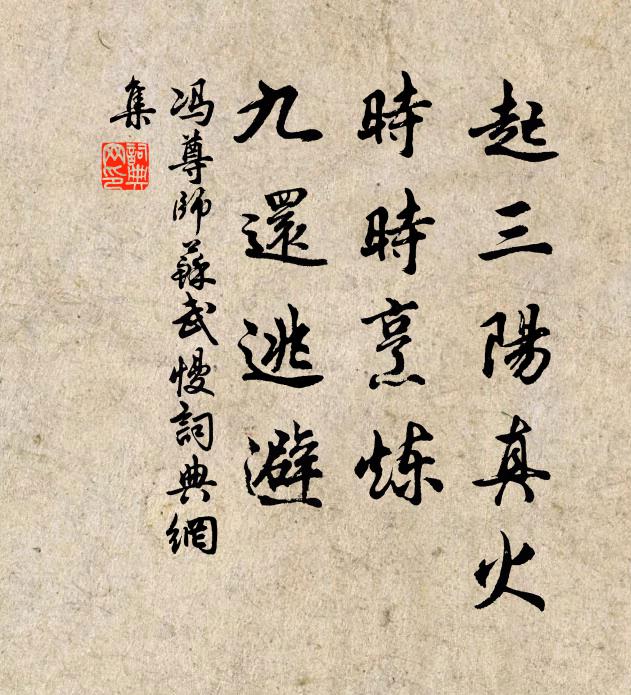 起三陽真火
時時烹炼
九還逃避
冯尊師蘇武慢詞典網
集
詞典
网印